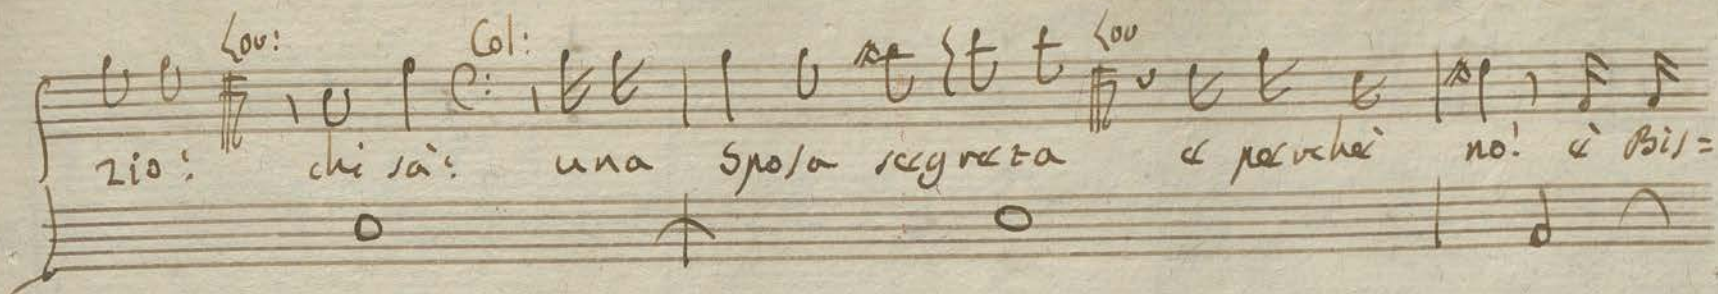 Lov: Col: Lov
zio: chi sà: una Sposa segreta e perchè no! è Bis=